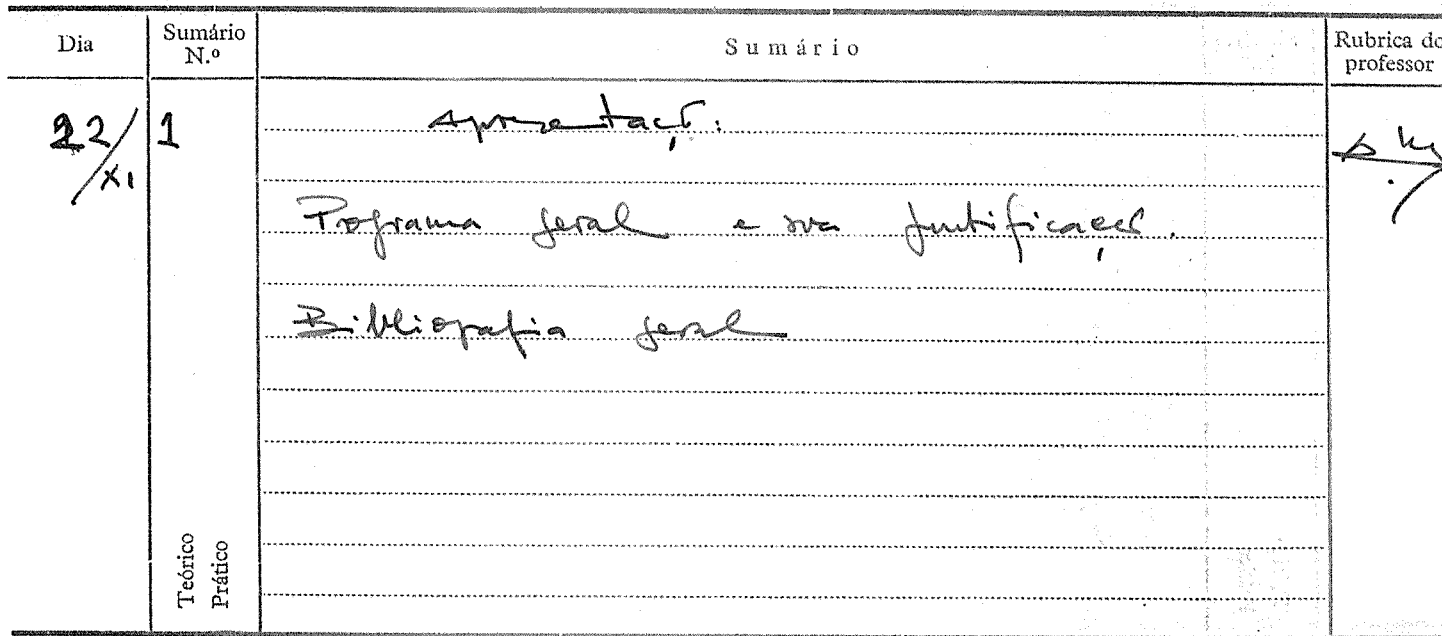 Dia
Sumário
N.º
Sumário
Rubrica do
professor
22/XI
1
Apresentação.
Programa geral e sua justificação.
Bibliografia geral
Teórico
Prático